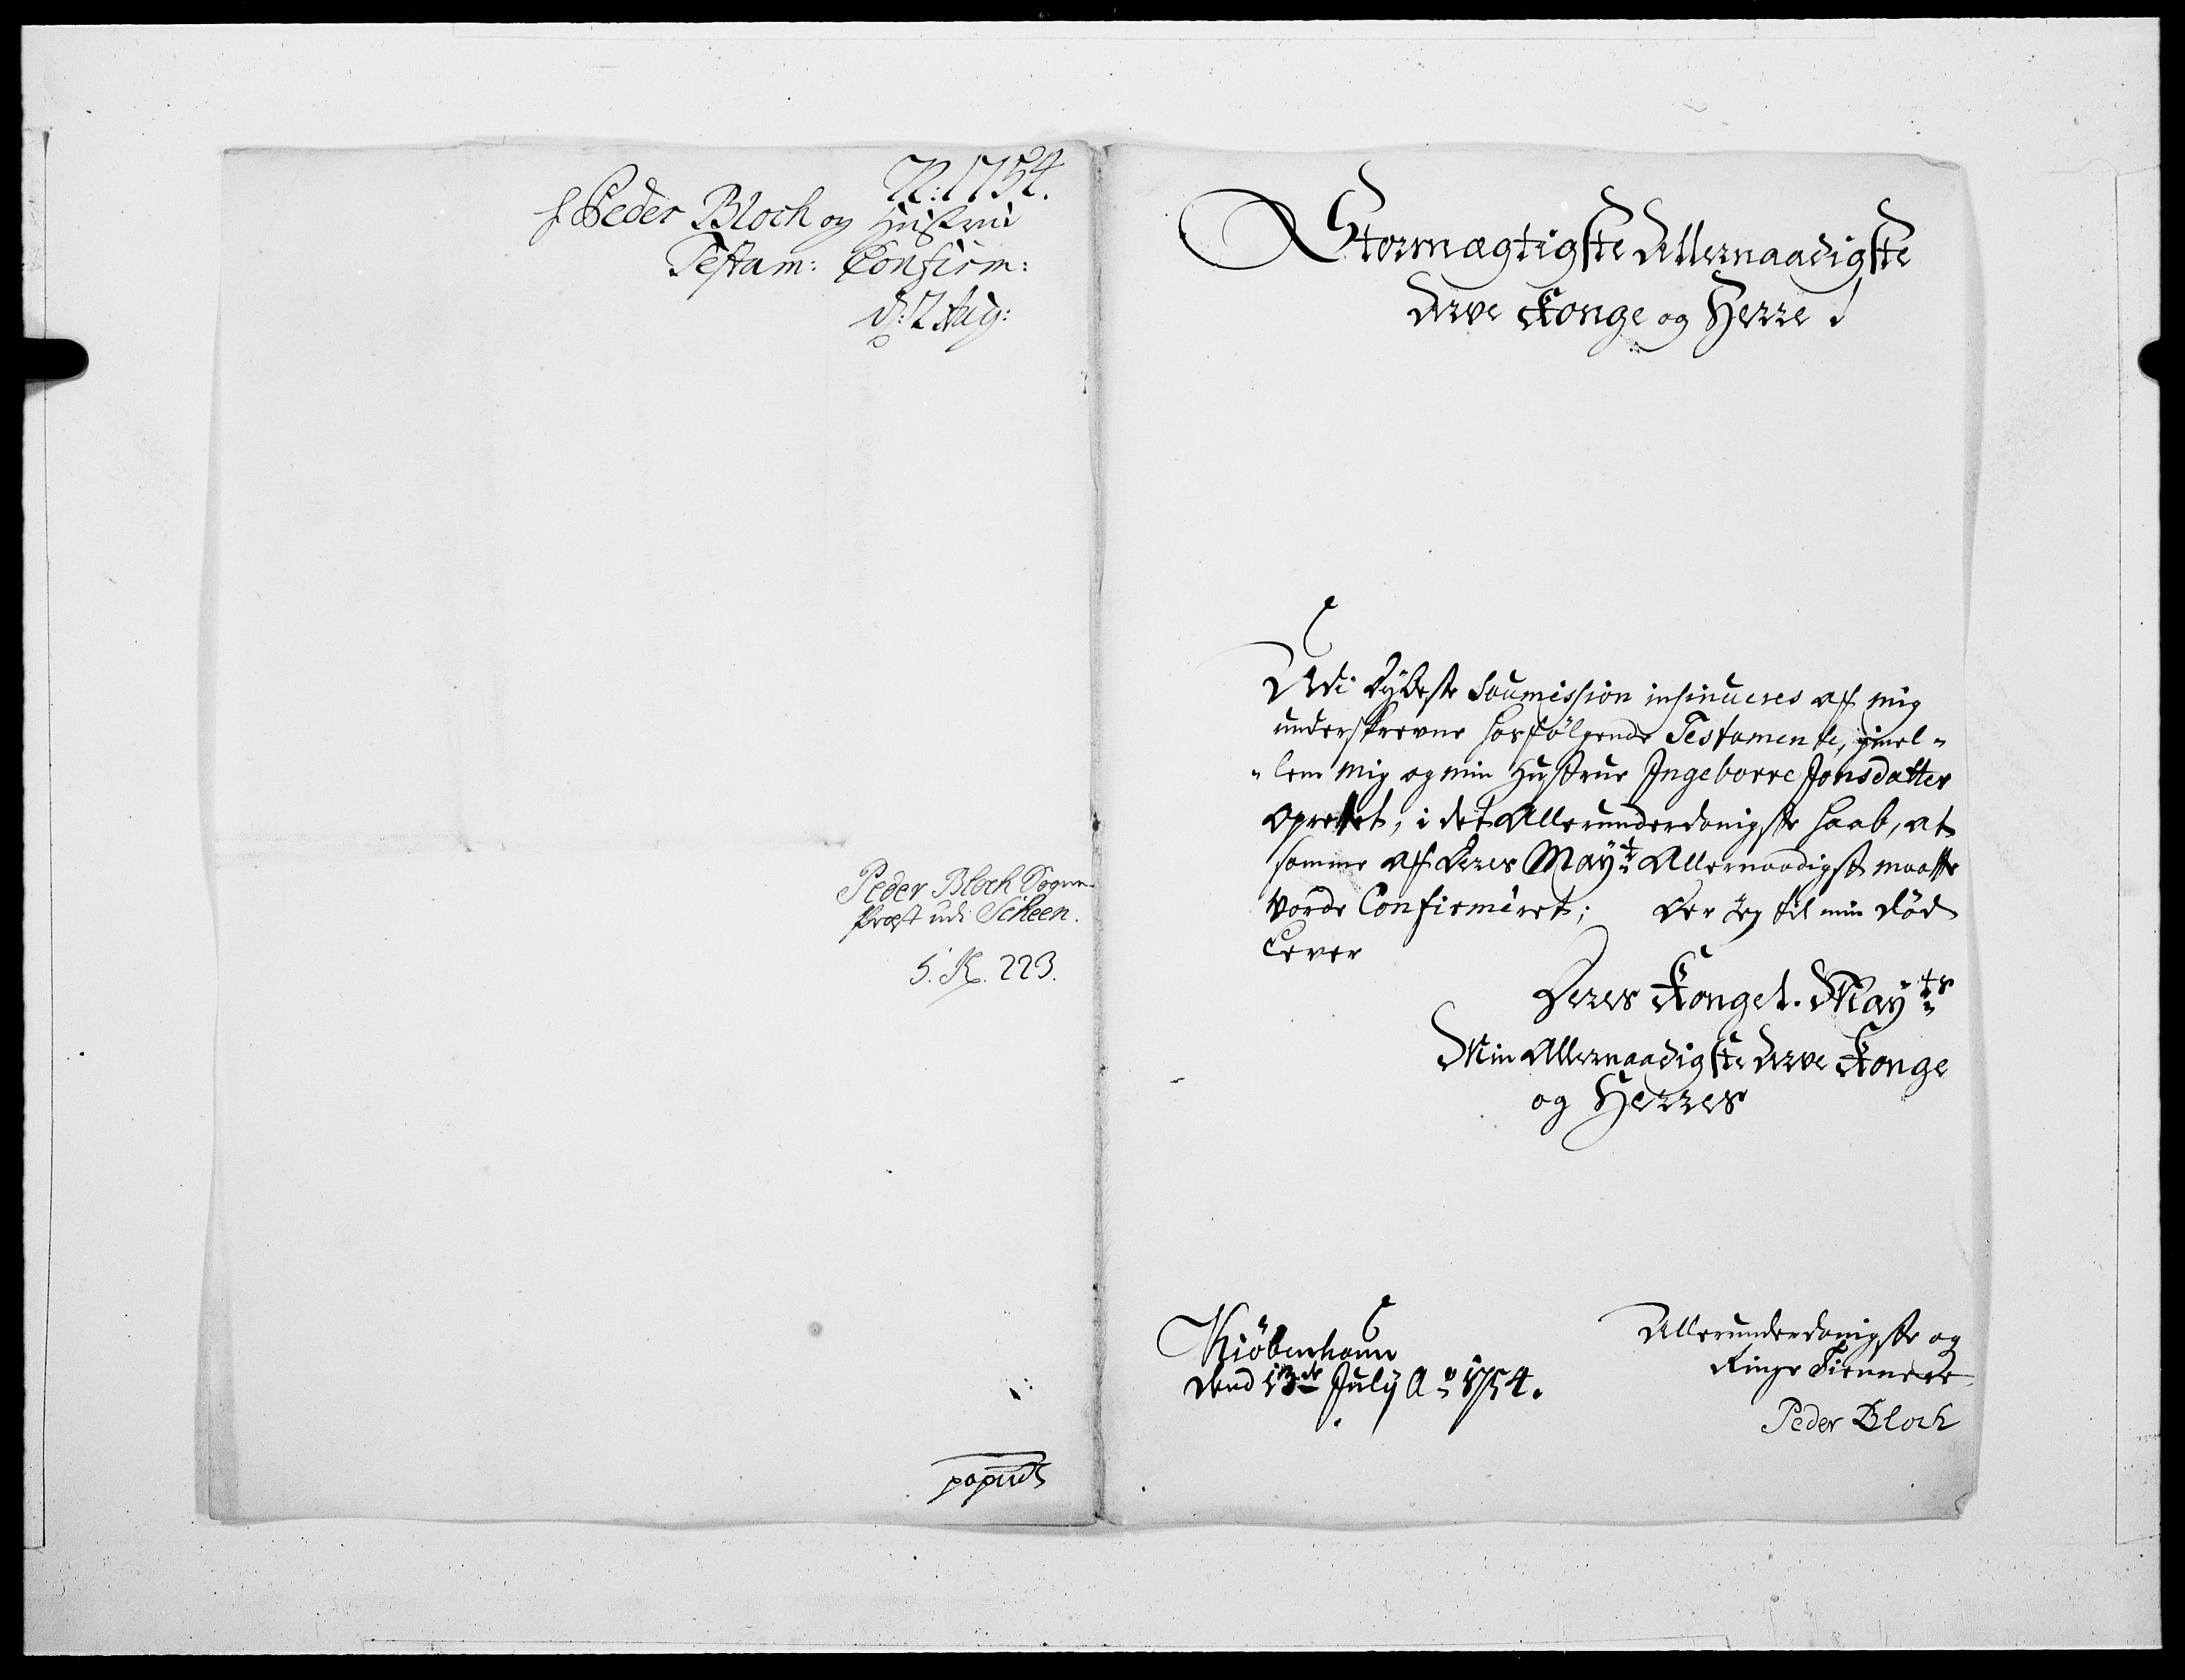 N: 1754.
f. Peder Bloch og Hustrue
Testam: Confirm:
d: 2 Aug:
Peder Bloch Sogne-
Præst udi Scheen.
S. R. 223.
papiret
Stormægtigste Allernaadigste
Arve Konge og Herre!
Udi dybeste Soumission insinueres af mig
underskrevne hosfølgende Testamente, imel-
-lem mig og min Hustrue Ingeborre Jonsdatter
oprettet, i det Allerunderdanigste haab, at
samme af Deres Mayt Allernaadigst maatte
vorde Confirmèret; der jeg til min död
lever
Deres Kongel. Mayts
Min Allernaadigste Arve Konge
og Herres
Kiöbenhaun
dend 13de July Ao 1754.
Allerunderdanigste og
Ringe Tiennere
Peder Bloch